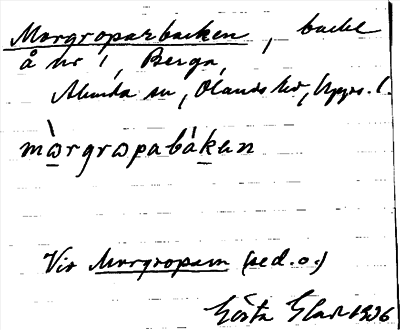 Morgroparbacken, backe
å nr 1, Berga,
Alunda sn, Olands hd, Upps. l.
mòrgropabáken
Vid Morgropam (sed.o.)
Gösta Glad 1936